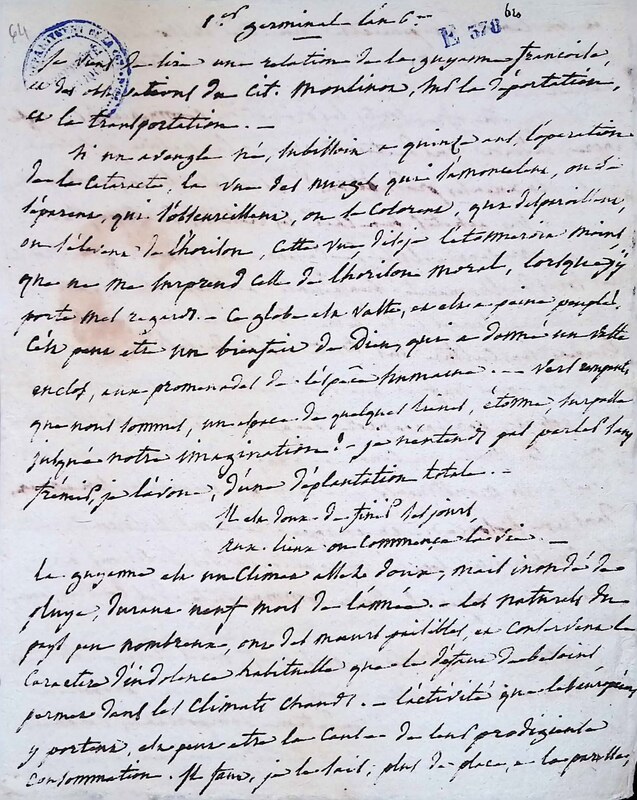 64
1er germinal l'an 6me
E 378 64
je viens de lire une relation de la guyanne françoise,
et des observations du cit. Moulinon, sur la déportation,
et la transportation. —
Si un aveugle né, subissoit a quinze ans, l'operation
de la Cataracte, la vue des nuages qui s'amoncelens, ou se
séparens, qui s'obscurcissens, ou se Colorens, qui disparoissens,
ou s'élevens de l'horison, cette vue disje l'etonneroit moins
que ne me surprend celle de l'horison moral, lorsque j'y
porte mes regards. — Ce globe est vaste, et est a peine peuplé,
C'est peut etre un bienfait de Dieu, qui a donné un vaste
enclos, aux promenades de l'espèce humaine. — Vers rampants
que nous sommes, un espace de quelques lieues, étonne, surpasse
jusqu'a notre imagination! — je n'entends pas parler sans
frémir, je l'avoue, d'une déplantation totale. —
Il est doux de finir ses jours
aux lieux ou commença la vie. —
La guyanne est un Climat assez doux, mais inondé de
pluye, durant neuf mois de l'année. — Les naturels du
pays peu nombreux, ont des mœurs paisibles, et conservent le
Caractere d'indolence habituelle que le défaut de besoins
permet dans les Climats chauds. — L'activité que les européens
y portent, est peut etre la cause de leur prodigieuse
Consommation. Il faut, je le sais, plus de place, a la